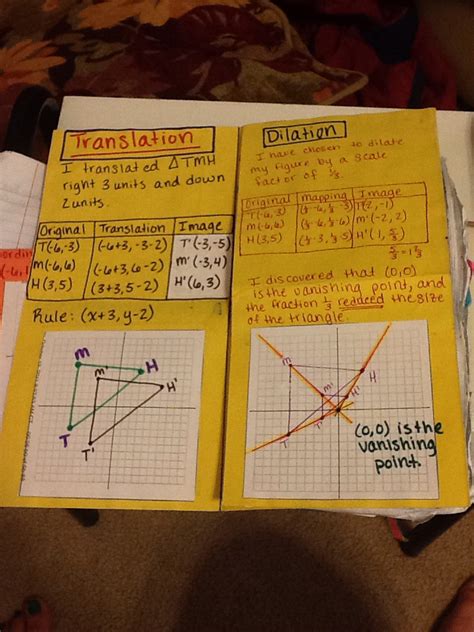 Translation
I translated △TMH
right 3 units and down
2 units.
Original Translation Image
T(-6,-3) (-6+3,-3-2) T'(-3,-5)
m(-6,6) (-6+3,6-2) m'(-3,4)
H(3,5) (3+3,5-2) H'(6,3)
Rule: (x+3,y-2)
M
H
m'
H'
T
T'
Dilation
I have chosen to dilate
my figure by a scale
factor of ⅓.
Original mapping Image
T(-6,3) (⅓·-6,⅓·-3) T'(2,-1)
m(-6,6) (⅓·-6,⅓·6) m'(-2,2)
H(3,5) (⅓·3,⅓·5) H'(1,5/3)
5/3=1⅔
I discovered that (0,0)
is the vanishing point, and
the fraction ⅓ reduced the size
of the triangle.
m
H
m'
H'
T
T'
(0,0) is the
vanishing
point.